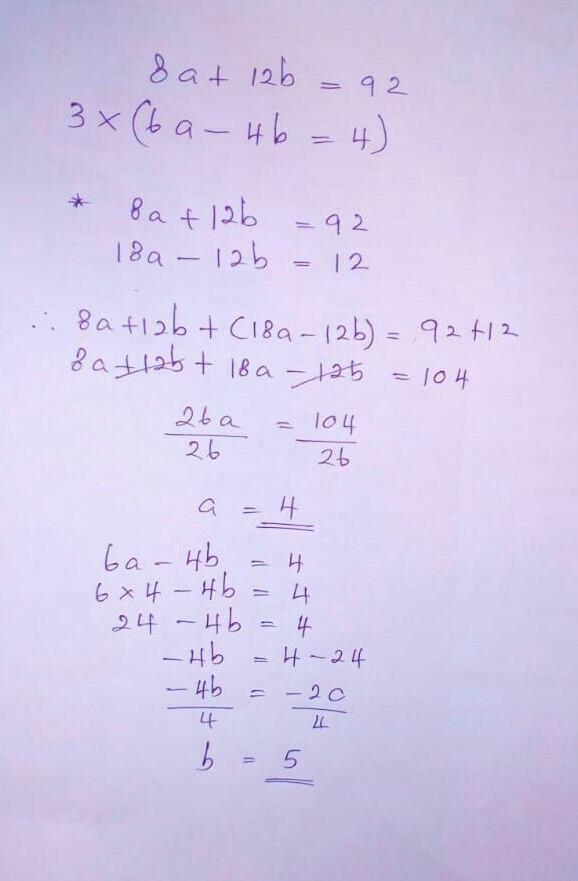 8a + 12b = 92
3 × (6a - 4b = 4)
* 8a + 12b = 92
18a - 12b = 12
∴ 8a + 12b + (18a - 12b) = 92 + 12
8a + 12b + 18a - 12b = 104
26a = 104
26 26
a = 4
6a - 4b = 4
6 × 4 - 4b = 4
24 - 4b = 4
-4b = 4 - 24
-4b = -20
4 4
b = 5